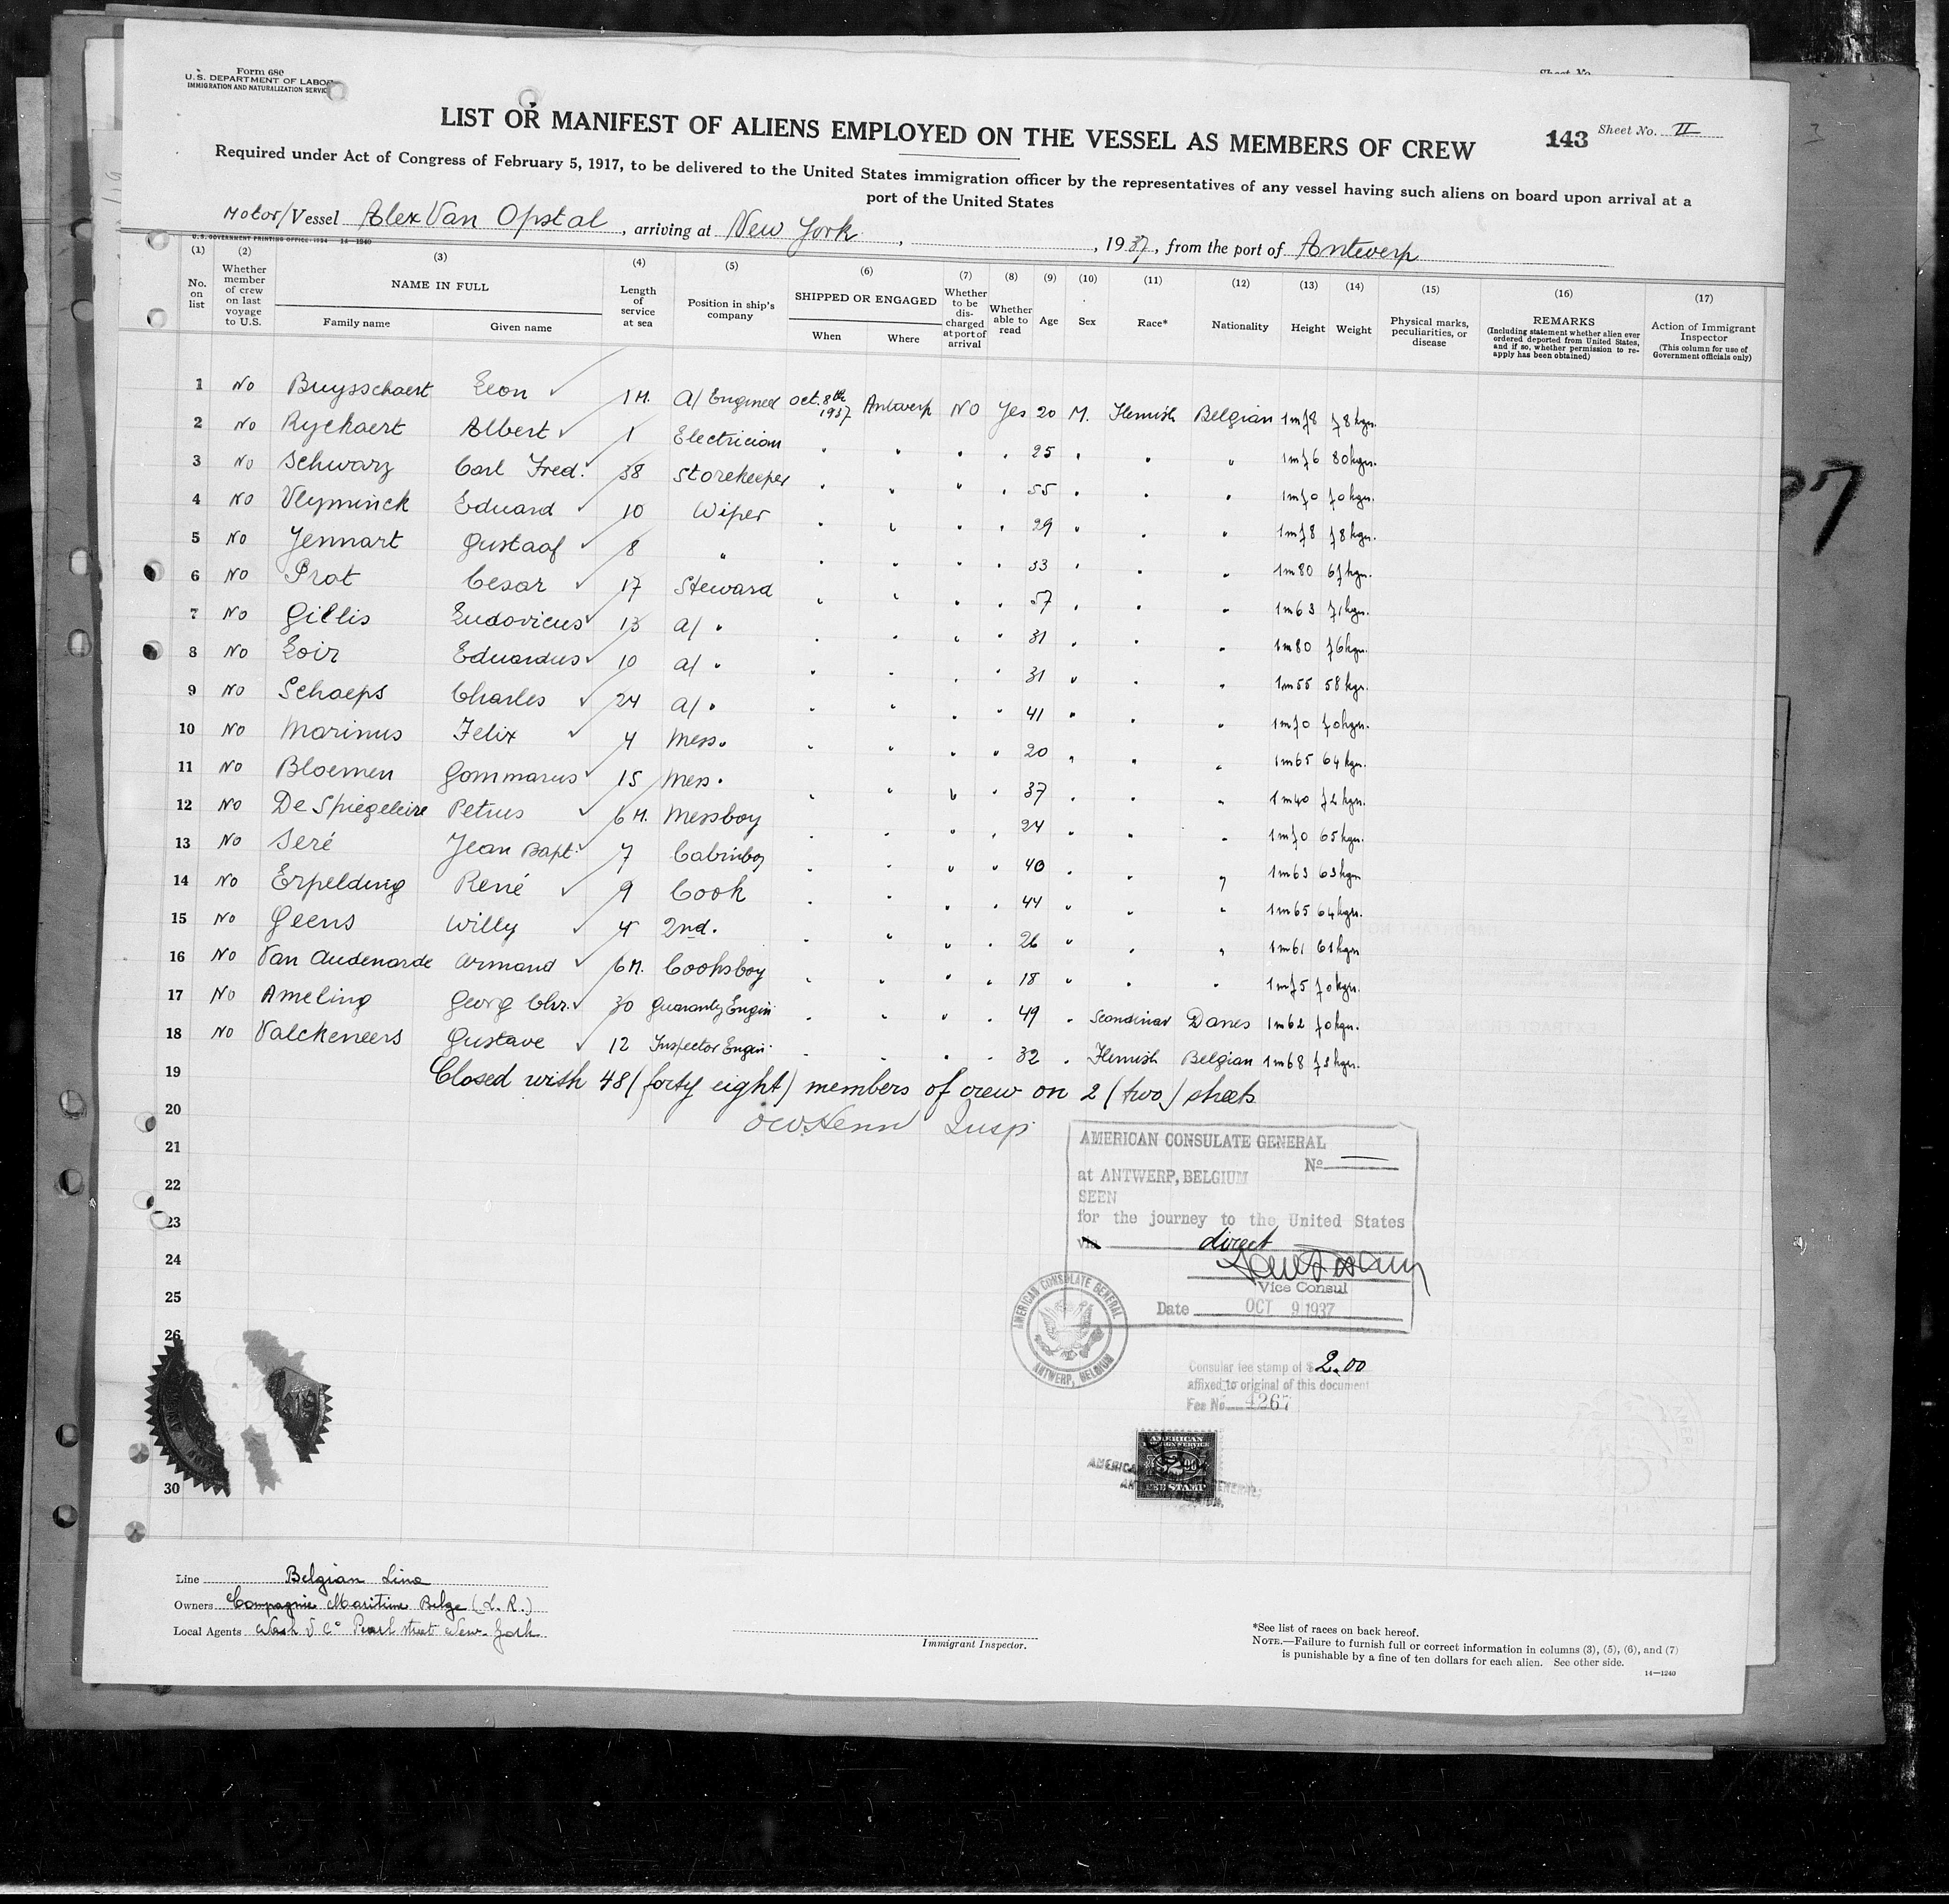 Form 680
U.S. DEPARTMENT OF LABOR
IMMIGRATION AND NATURALIZATION SERVICE
Sheet No.
LIST OR MANIFEST OF ALIENS EMPLOYED ON THE VESSEL AS MEMBERS OF CREW
143 Sheet No. II
Required under Act of Congress of February 5, 1917, to be delivered to the United States immigration officer by the representatives of any vessel having such aliens on board upon arrival at a
port of the United States
Motor/Vessel Alex Van Opstal, arriving at New York, , 1937, from the port of Antwerp
U.S. GOVERNMENT PRINTING OFFICE: 1934 14—1240
(1) (2) (3) (4) (5) (6) (7) (8) (9) (10) (11) (12) (13) (14) (15) (16) (17)
No. on list
Whether member of crew on last voyage to U.S.
NAME IN FULL
Family name Given name
Length of service at sea
Position in ship's company
SHIPPED OR ENGAGED
When Where
Whether to be discharged at port of arrival
Whether able to read
Age Sex Race* Nationality Height Weight
Physical marks, peculiarities, or disease
REMARKS
(Including statement whether alien ever ordered deported from United States, and if so, whether permission to reapply has been obtained)
Action of Immigrant Inspector
(This column for use of Government officials only)
1 No Buysschaert Leon ✓ 1 M. a/ Engineer Oct. 8th 1937 Antwerp No Yes 20 M. Flemish Belgian 1m78 78kgr.
2 No Ryckaert Albert ✓ 1 Electrician " " " " 25 " " " 1m76 80kgr.
3 No Schwarz Carl Fred. ✓ 38 Storekeeper " " " " 55 " " " 1m70 70kgr.
4 No Vlyminck Eduard ✓ 10 Wiper " " " " 29 " " " 1m78 78kgr.
5 No Jennart Gustaaf ✓ 8 " " " " " 33 " " " 1m80 67kgr.
6 No Prot Cesar ✓ 17 Steward " " " " 57 " " " 1m63 71kgr.
7 No Gillis Ludovicus ✓ 13 a/ " " " " " 31 " " " 1m80 76kgr.
8 No Loir Eduardus ✓ 10 a/ " " " " " 31 " " " 1m55 58kgr.
9 No Schaeps Charles ✓ 24 a/ " " " " " 41 " " " 1m70 70kgr.
10 No Marinus Felix ✓ 4 Mess. " " " " 20 " " " 1m65 64kgr.
11 No Bloemen Gommarus ✓ 15 Mess. " " " " 37 " " " 1m40 72kgr.
12 No De Spiegeleire Petrus ✓ 6 M. Messboy " " " " 24 " " " 1m70 65kgr.
13 No Seré Jean Bapt. 7 Cabinboy " " " " 40 " " " 1m63 63kgr
14 No Erpelding René ✓ 9 Cook " " " " 44 " " " 1m65 64kgr.
15 No Geens Willy ✓ 4 2nd. " " " " 26 " " " 1m61 61kgr
16 No Van Audenarde Armand ✓ 6 M. Cooksboy " " " " 18 " " " 1m75 70kgr.
17 No Ameling Georg Chr. ✓ 30 Guaranty Engin. " " " " 49 " Scandinav Danes 1m62 70kgr.
18 No Valckeneers Gustave ✓ 12 Inspector Engin. " " " " 32 " Flemish Belgian 1m68 73kgr.
19 Closed with 48 (forty eight) members of crew on 2 (two) sheets
20
21
22
23
24
25
26
30
Insp
AMERICAN CONSULATE GENERAL
No —
at ANTWERP, BELGIUM
SEEN
for the journey to the United States
via direct
Vice Consul
Date OCT 9 1937
AMERICAN CONSULATE GENERAL
ANTWERP, BELGIUM
Consular fee stamp of $ 2.00
affixed to original of this document
Fee No. 4267
AMERICAN
FOREIGN SERVICE
$2.00
FEE STAMP
Line Belgian Line
Owners Compagnie Maritime Belge (L.R.)
Local Agents Pearl street New-York
Immigrant Inspector.
*See list of races on back hereof.
NOTE.—Failure to furnish full or correct information in columns (3), (5), (6), and (7)
is punishable by a fine of ten dollars for each alien. See other side.
14—1240